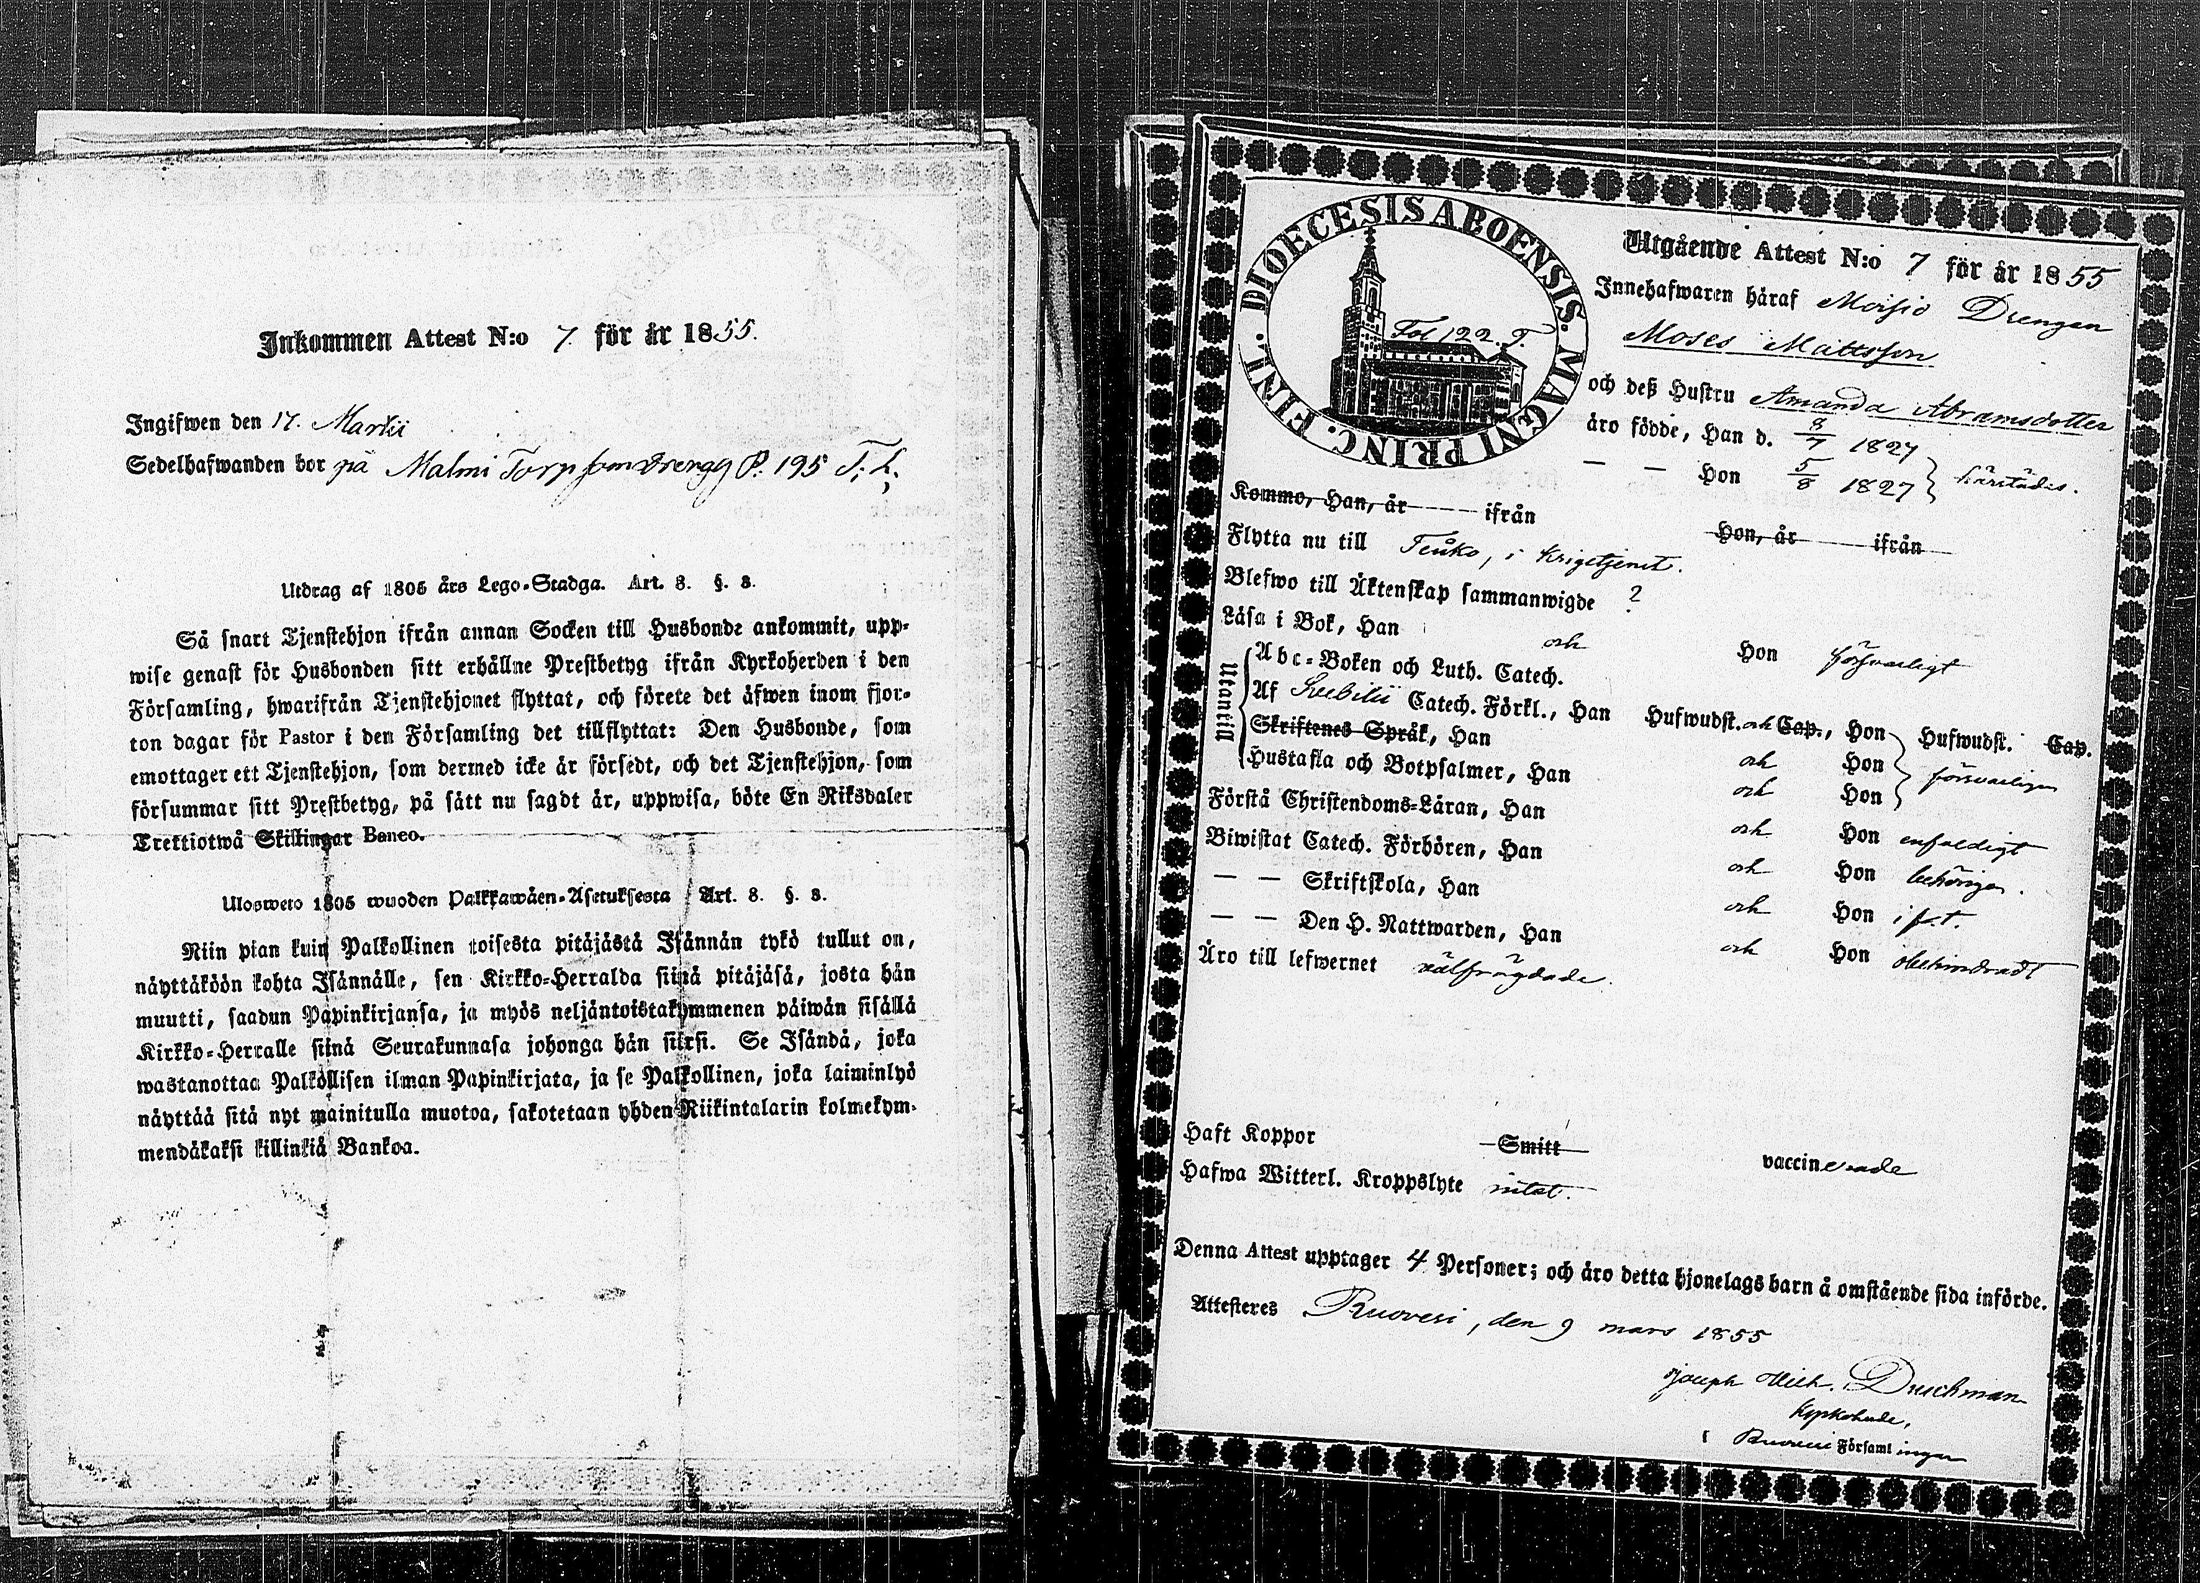 Inkommen Attest N:o 7 för år 1855.
Ingifwen den 17. Martii
Sedelhafwanden bor på Malmi Torp som drengg P. 195 T. K.
Utdrag af 1805 års Lego-Stadga. Art. 8. §. 8.
Så snart Tjenstehjon ifrån annan Socken till Husbonde ankommit, upp-
wise genast för Husbonden sitt erhållne Prestbetyg ifrån Kyrkoherden i den
Församling, hwarifrån Tjenstehjonet flyttat, och förete det äfwen inom fjor-
ton dagar för Pastor i den Församling det tillflyttat: Den Husbonde, som
emottager ett Tjenstehjon, som dermed icke är försedt, och det Tjenstehjon, som
försummar sitt Prestbetyg, på sätt nu sagdt är, uppwisa, böte En Riksdaler
Trettiotwå Skillingar Banco.
Ulosweto 1805 wuoden Palkkawäen-Asetuksesta Art. 8. §. 8.
Niin pian kuin Palkollinen toisesta pitäjästä Isännän tykö tullut on,
näyttäköön kohta Isännälle, sen Kirkko-Herralda siinä pitäjäsä, josta hän
muutti, saadun Papinkirjansa, ja myös neljäntoistakymmenen päiwän sisällä
Kirkko-Herralle siinä Seurakunnasa johonga hän siirsi. Se Isändä, joka
wastanottaa Palkollisen ilman Papinkirjata, ja se Palkollinen, joka laiminlyö
näyttää sitä nyt mainitulla muotoa, sakotetaan yhden Riikintalarin kolmekym-
mendäkaksi killinkiä Bankoa.
DIOECESIS ABOENSIS. MAGNI PRINC. FINL.
Fol 122. T.
Utgående Attest N:o 7 för år 1855
Innehafwaren häraf Moisio Drengen
Moses Mattsson
och deß Hustru Amanda Abramsdotter
äro födde, Han d. 8/7 1827
— — Hon 5/8 1827 } härstädes.
Kommo, Han, år ifrån Hon, år ifrån
Flytta nu till Teisko, i krigstjenst.
Blefwo till Äktenskap sammanwigde ?
Läsa i Bok, Han och Hon försvarligt
Utantill
Abc-Boken och Luth. Catech.
Af Svebilii Catech. Förkl., Han Hufwudst. och Cap., Hon Hufwudst. Cap.
Skriftenes Språk, Han och Hon försvarligen
Hustafla och Botpsalmer, Han och Hon
Förstå Christendoms-Läran, Han och Hon enfaldigt
Biwistat Catech. Förhören, Han och Hon behörigen.
— — Skriftskola, Han och Hon
— — Den H. Nattwarden, Han och Hon obehindradt
Äro till lefwernet välfrägdade.
Haft Koppor Smitt vaccinerade
Hafwa Witterl. Kroppslyte intet.
Denna Attest upptager 4 Personer; och äro detta hjonelags barn å omstående sida införde.
Attesteres Ruovesi, den 9 mars 1855
Joseph Wilh. Duschman
Kyrkoherde,
i Ruovesi Församlingen